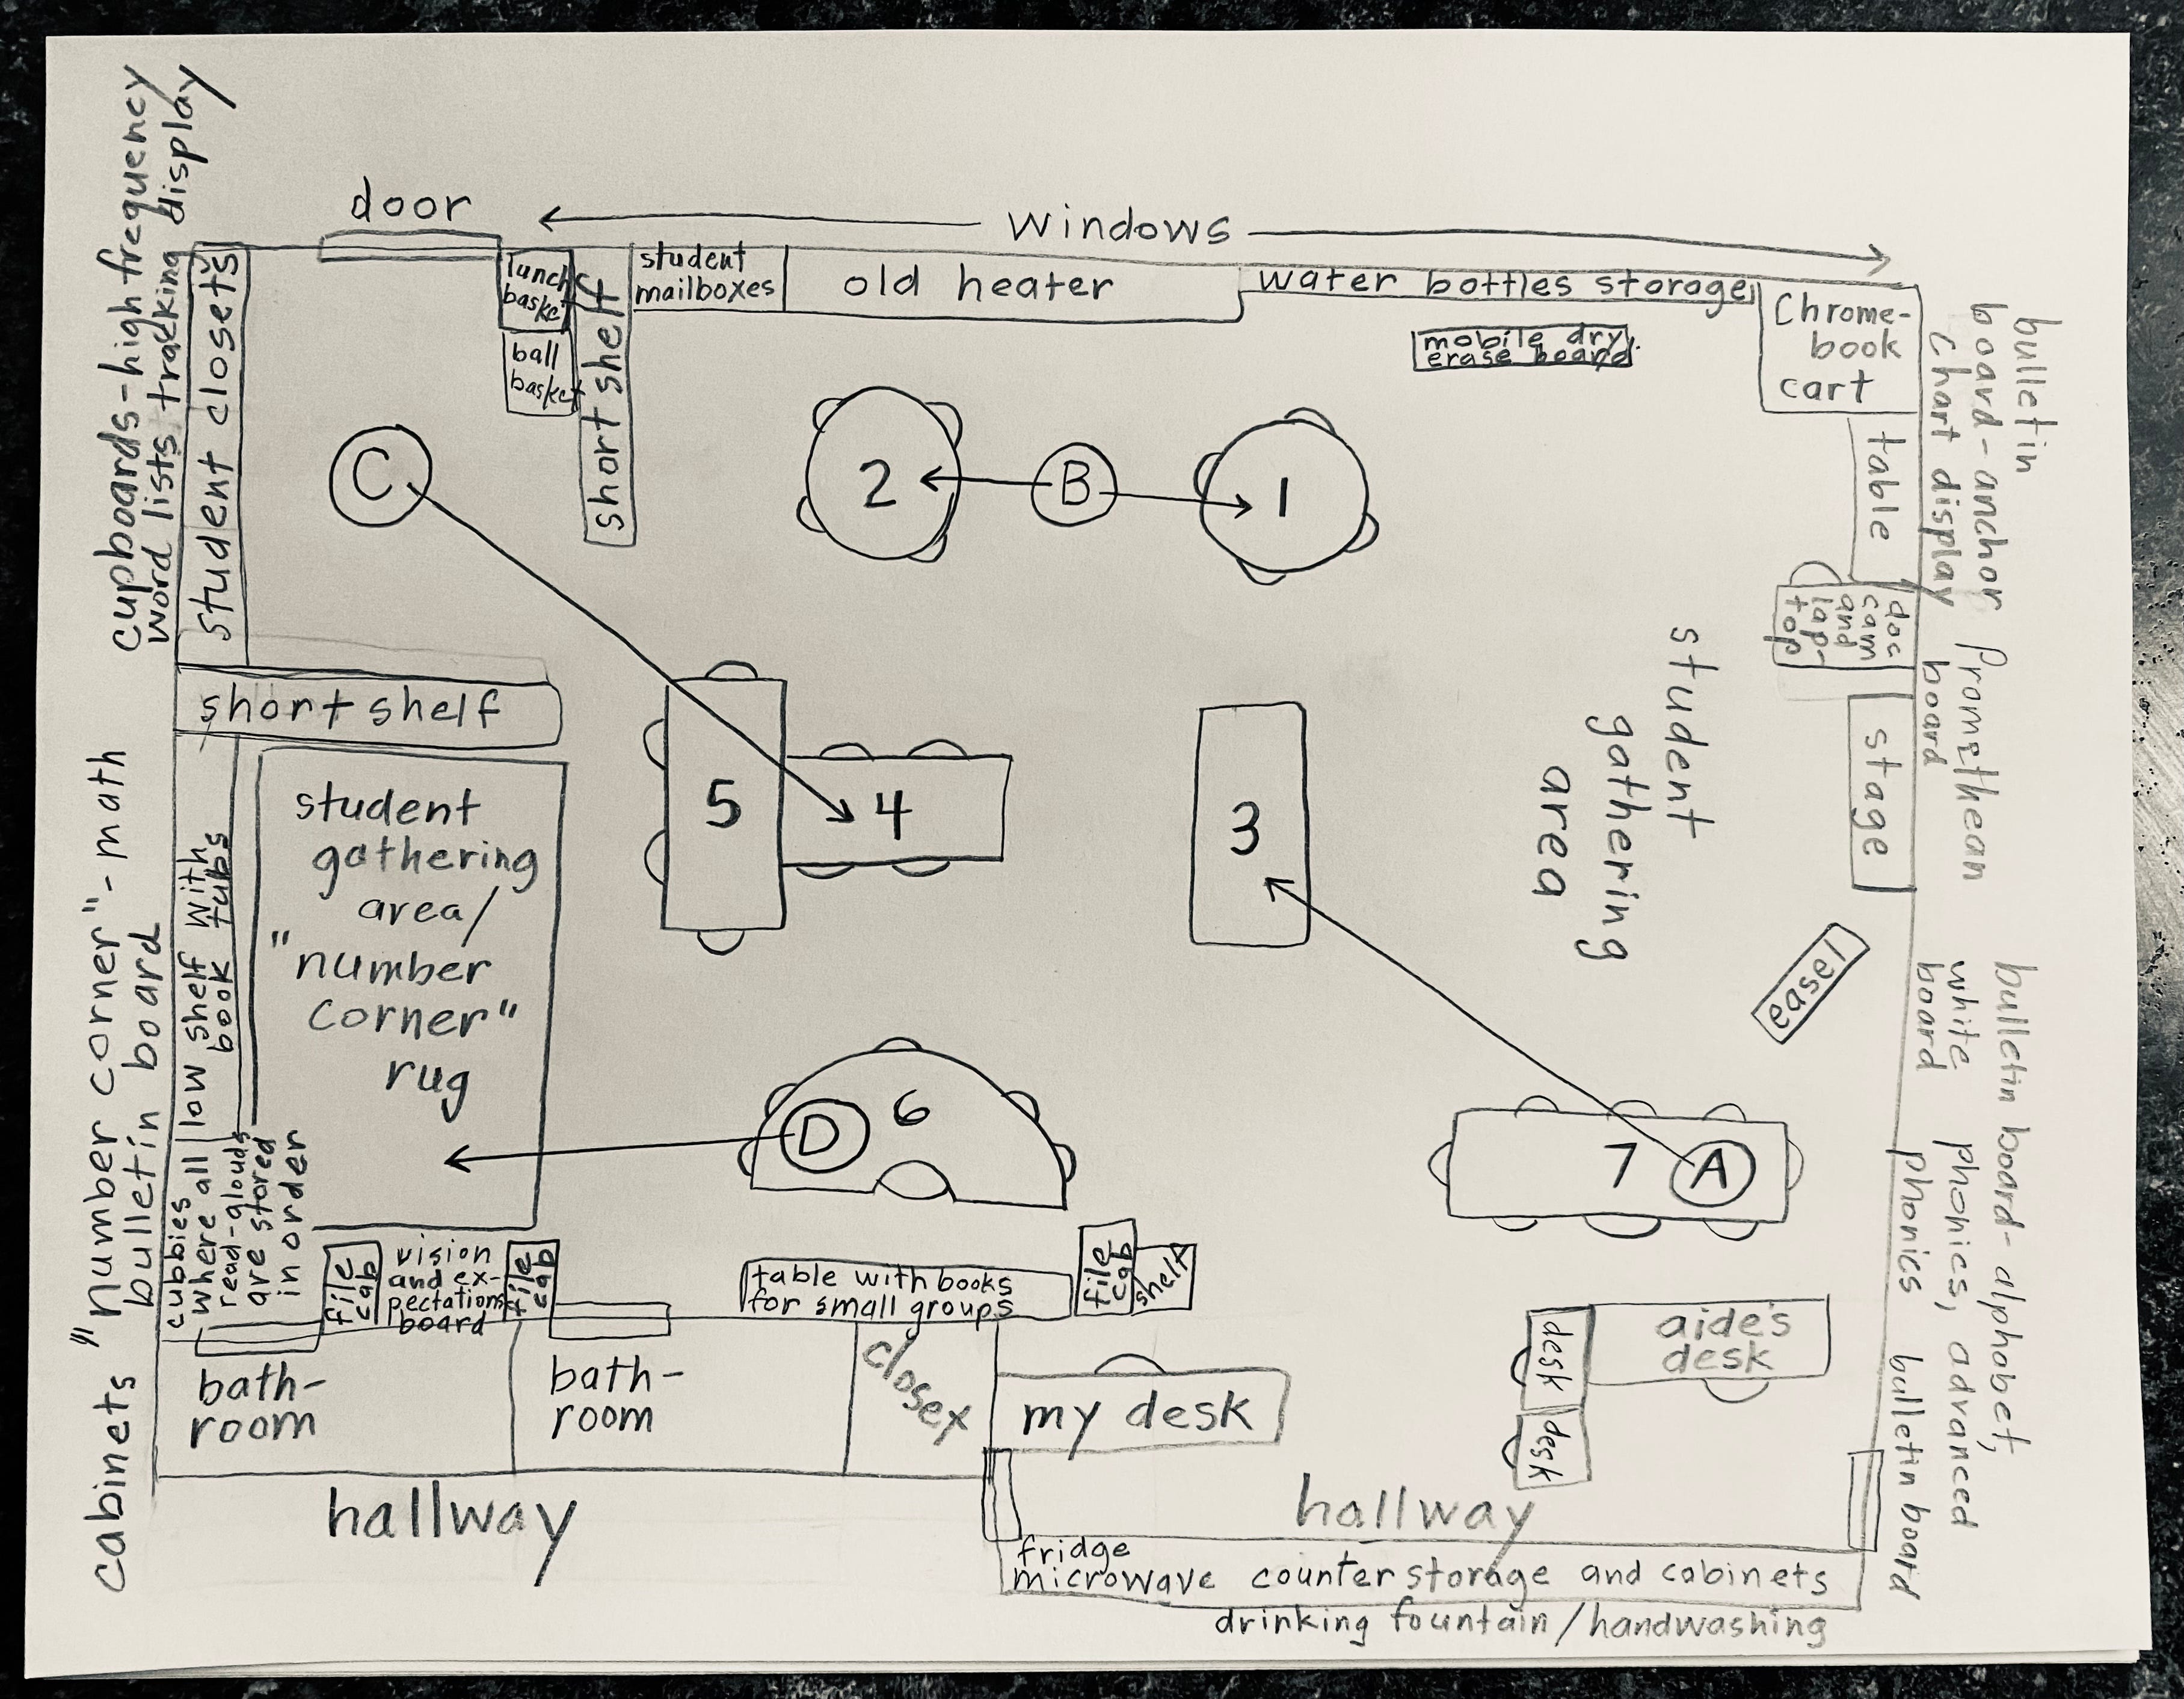 cupboards-high frequency
word lists tracking display
door
windows
student closets
lunch
basket
ball
basket
short shelf
student
mailboxes
old heater
water bottles storage
mobile dry
erase board
Chrome-
book
cart
table
bulletin
board-anchor
chart display
C
2
B
1
doc
cam
and
lap-
top
Promethean
board
short shelf
student
gathering
area
stage
5
4
3
student
gathering
area/
"number
corner"
rug
low shelf with
book tubs
"number corner"-math
bulletin board
easel
white
board
bulletin board-alphabet,
phonics, advanced
phonics bulletin board
D
6
7
A
cubbies
where all
read-alouds
are stored
in order
file
cab
vision
and ex-
pectations
board
file
cab
table with books
for small groups
file
cab
shelf
cabinets
bath-
room
bath-
room
closet
my desk
desk
desk
aide's
desk
hallway
hallway
fridge
microwave counter storage and cabinets
drinking fountain/handwashing